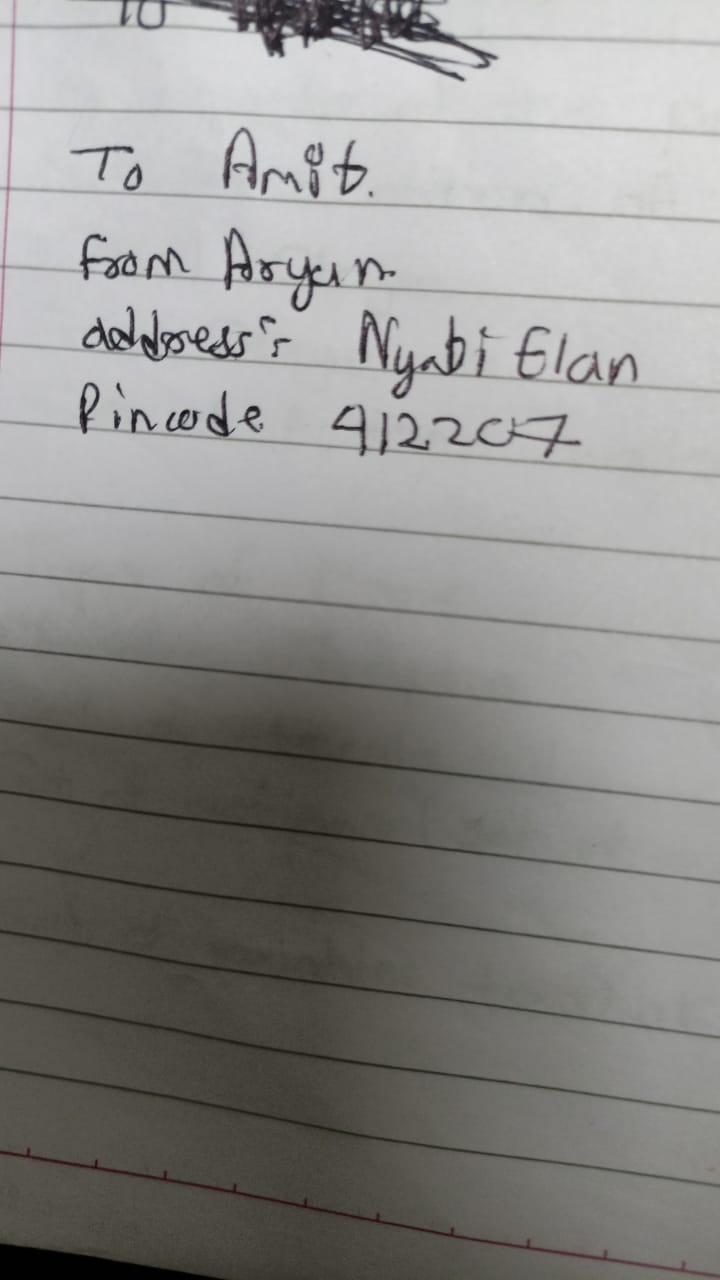 To
To Amit.
From Aryan
address:
Nyabi Elan
Pincode 412207